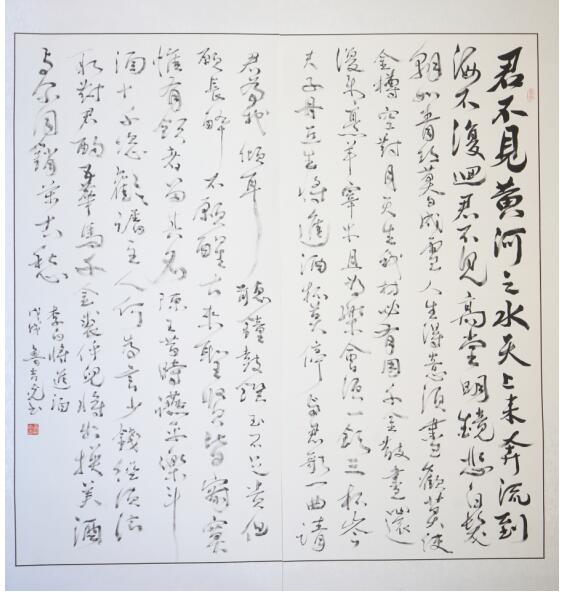 君不見黄河之水天上来奔流到
海不復迴君不見高堂明鏡悲白髮
朝如青絲莫成雪人生得意須盡歡莫使
金樽空對月天生我材必有用千金散盡還
復来烹羊宰牛且為樂會須一飲三杯岑
夫子丹丘生將進酒杯莫停與君歌一曲請
君為我傾耳聽鐘鼓饌玉不足貴但
願長醉不願醒古来聖賢皆寂寞
惟有飲者留其名陳王昔時讌平樂斗
酒十千恣歡謔主人何為言少錢徑須沽
取對君酌五華馬千金裘呼兒將出換美酒
与尔同銷萬古愁
李白將進酒
戊戌